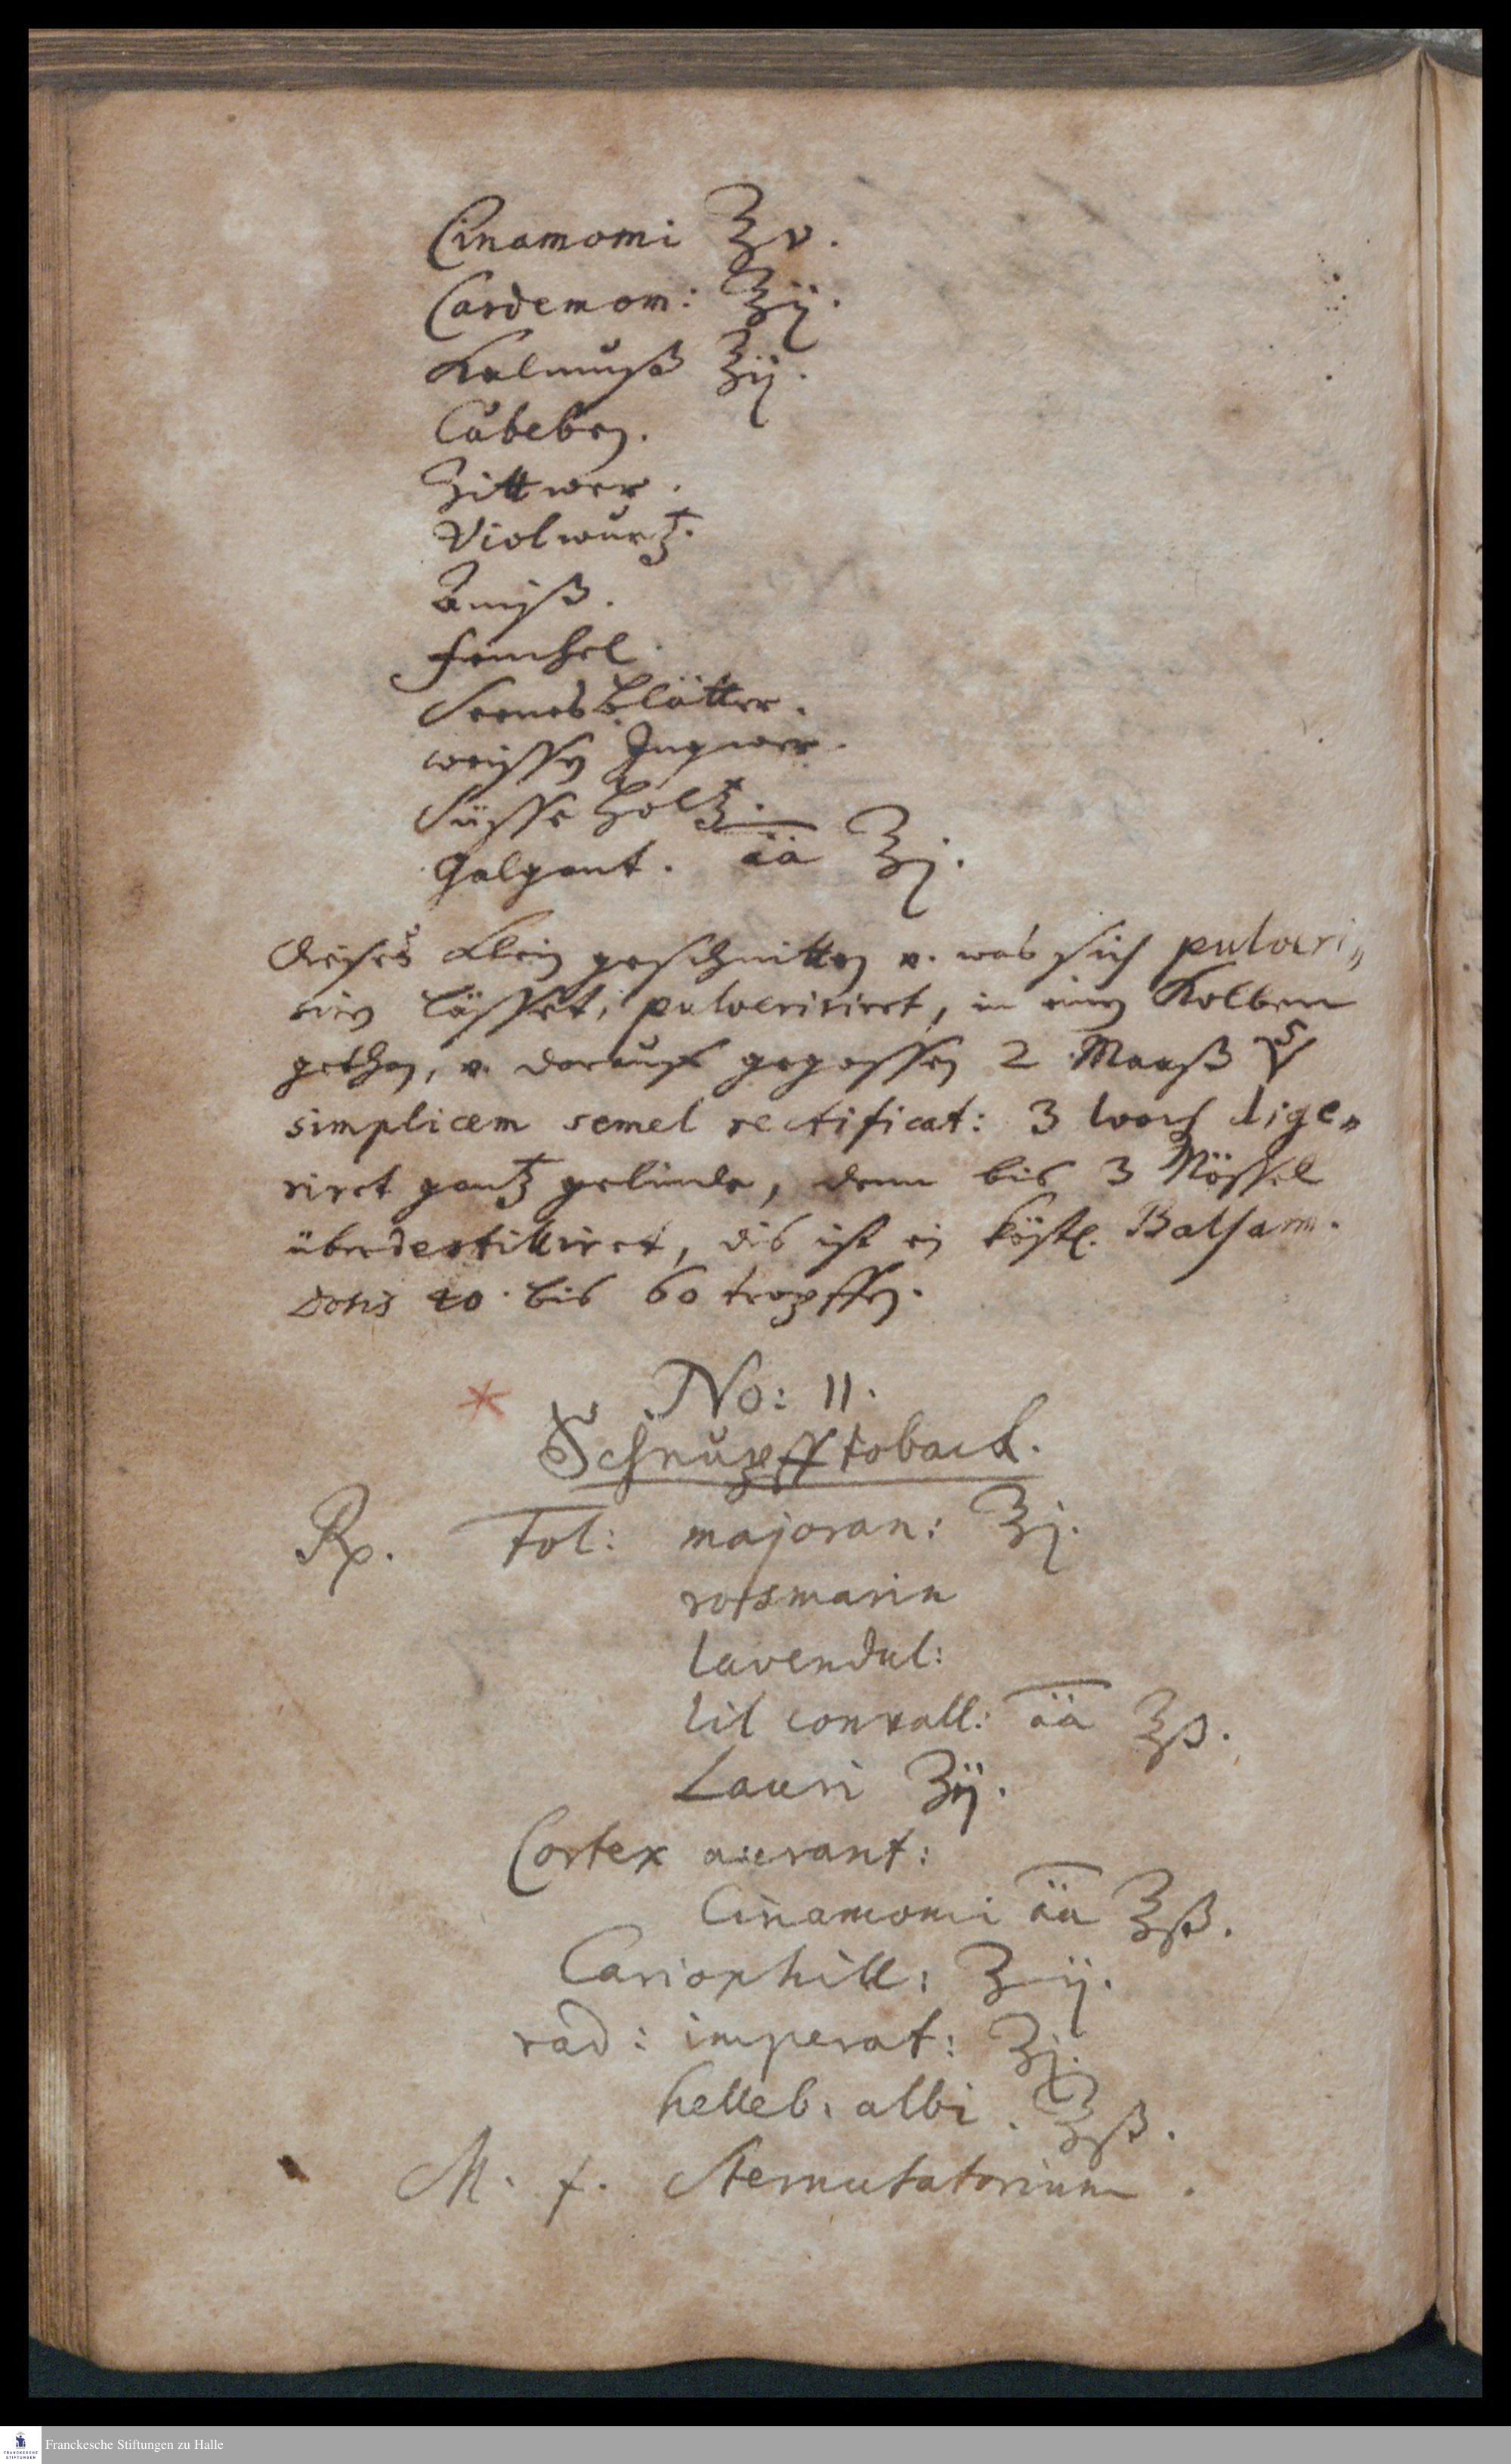 Cinamomi ʒv.
Cardemom: ʒij.
Kalmuß ʒij.
Cubeben.
Zittwer.
Violwurtz.
Aniß.
Fenchel.
Senesblätter.
weissen Ingwer.
Süsse Holtz.
Galgant. āā ʒj.
Dieses klein geschnitten u. was sich pulveri„
siren lässet, pulverisiret, in einen Kolben
gethan, u. darauff gegossen 2 Maaß
simplicem semel rectificat: 3 woch dige„
riret gantz gelinde, denn bis 3 Nössel
überdestilliret, dis ist ein köstl. Balsam.
Dosis 40. bis 60 tropffen.
No: 11.
Schnupfftoback.
Rp. Fol: majoran: ʒj.
rorsmarin
lavendul:
Lil convall: āā ʒß.
Lauri ʒij.
Cortex aurant:
Cinamomi āā ʒß.
Cariophill: ʒij.
rad: imperat: ʒj.
helleb. albi. ʒß.
M. f. Sternutatorium.
Franckesche Stiftungen zu Halle
FRANCKESCHE
STIFTUNGEN